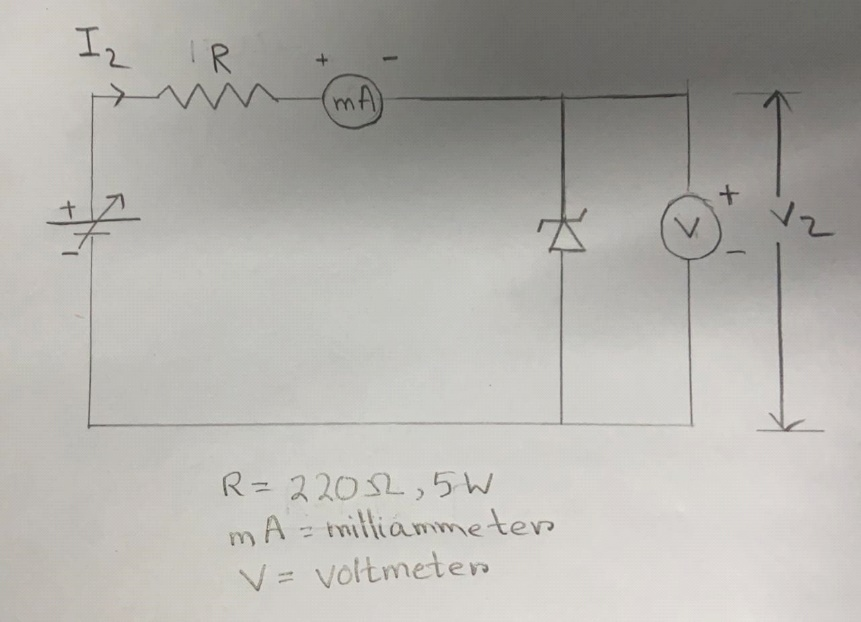 I2 R + -
mA
+
-
V + -
V2
R = 220Ω, 5W
mA = milliammeter
V = voltmeter